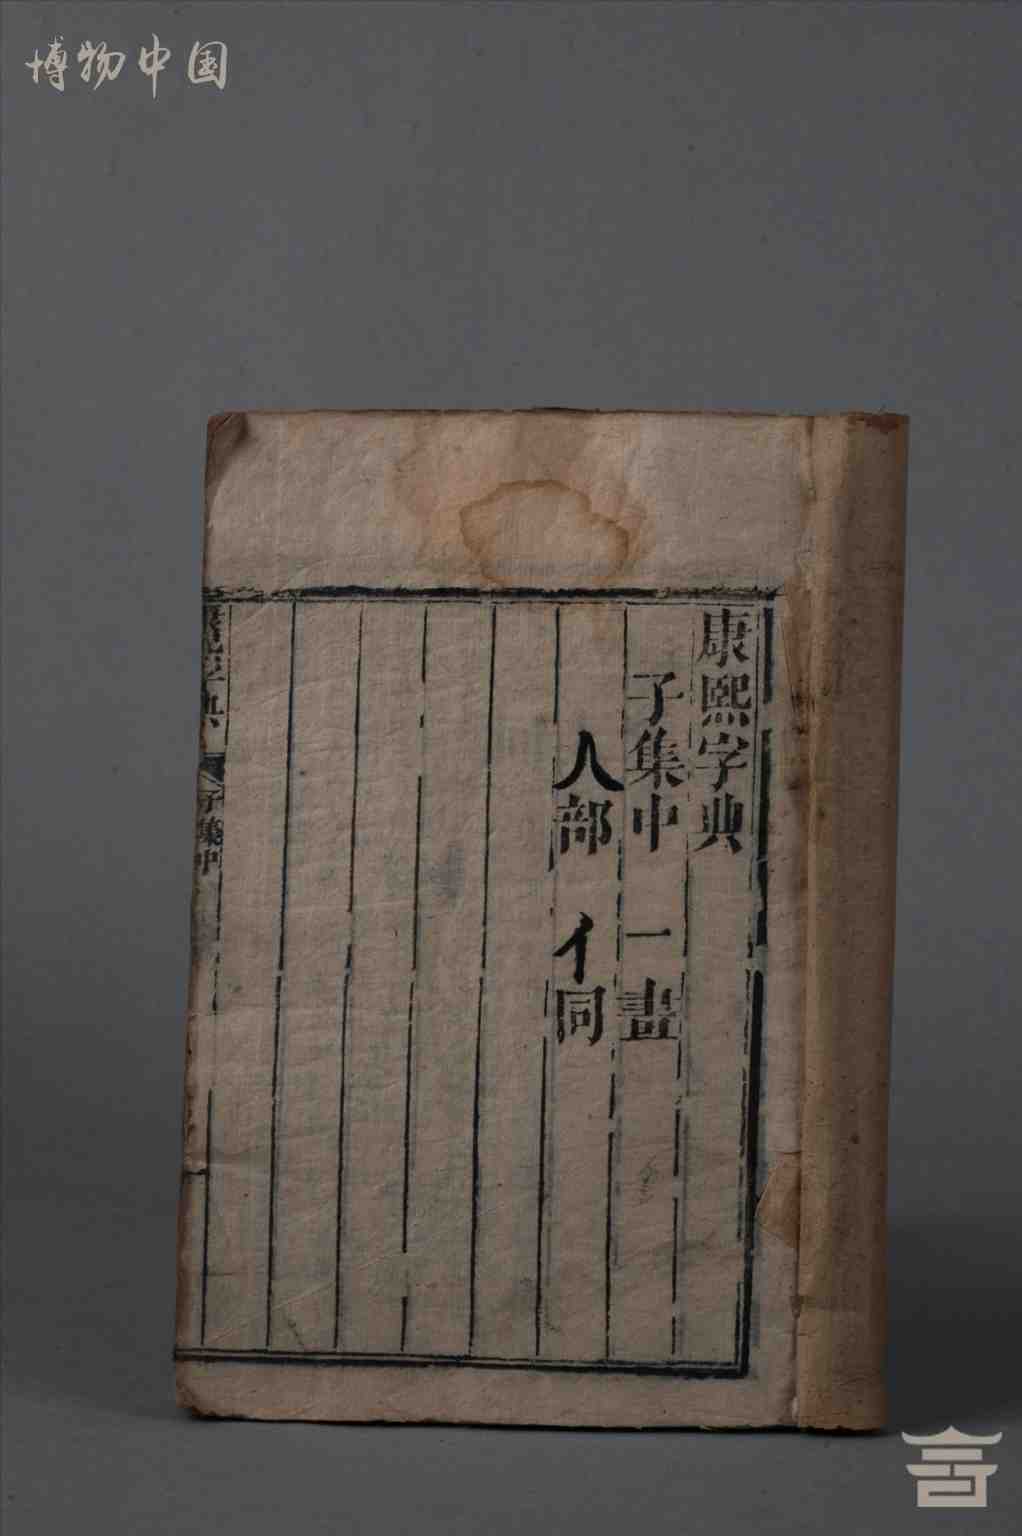 博物中国
康熙字典
子集中 一畫
人部 亻同
康熙字典
子集中